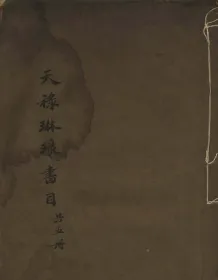 天祿琳琅書目
第五冊